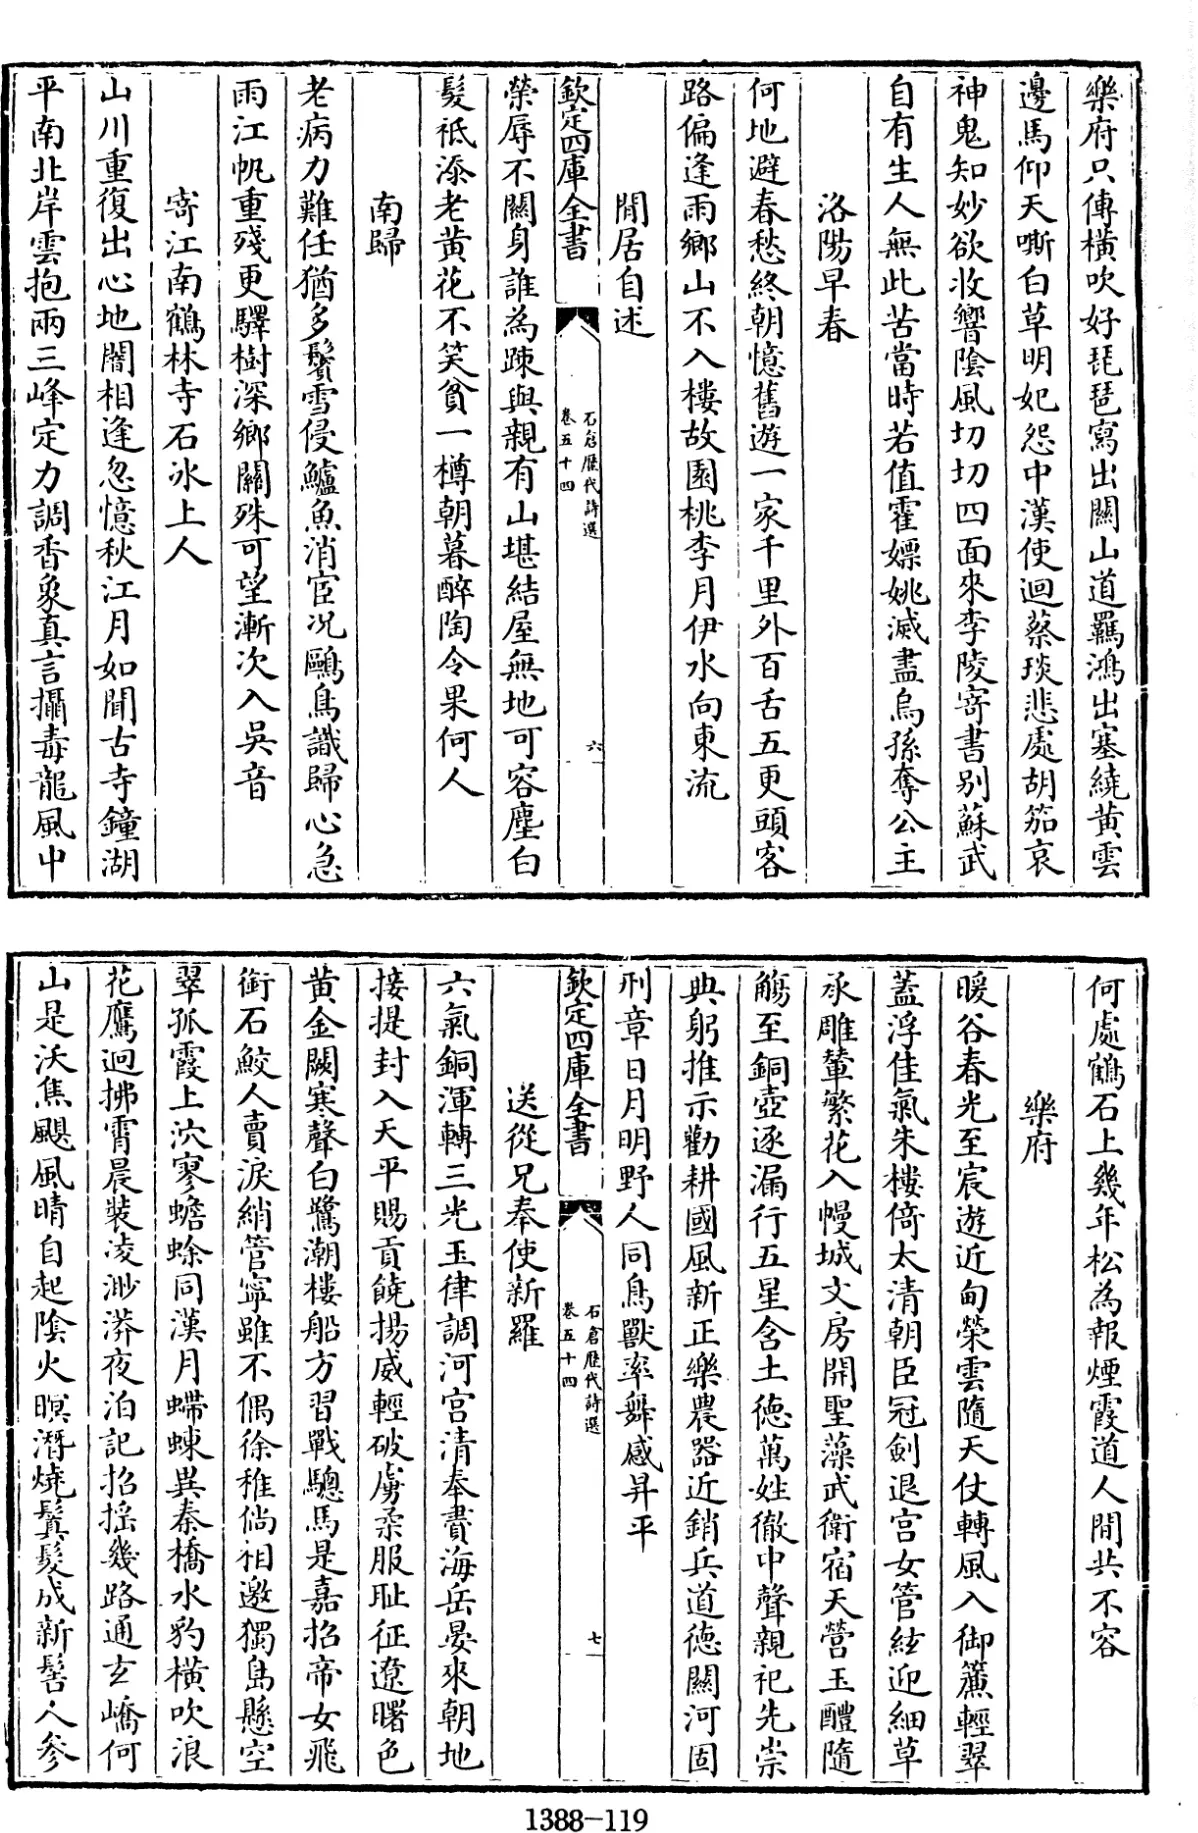 樂府只傳横吹好琵琶寫出關山道羈鴻出塞繞黄雲
邊馬仰天嘶白草明妃怨中漢使迴蔡琰悲處胡笳哀
神鬼知妙欲收響陰風切切四面來李陵寄書别蘇武
自有生人無此苦當時若值霍嫖姚滅盡烏孫奪公主
洛陽早春
何地避春愁終朝憶舊遊一家千里外百舌五更頭客
路偏逢雨鄉山不入樓故園桃李月伊水向東流
閒居自述
欽定四庫全書
石倉歷代詩選
卷五十四
六
榮辱不關身誰為疎與親有山堪結屋無地可容塵白
髮祗添老黄花不笑貧一樽朝暮醉陶令果何人
南歸
老病力難任猶多鬢雪侵鱸魚消宦况鷗鳥識歸心急
雨江帆重殘更驛樹深鄉關殊可望漸次入吳音
寄江南鶴林寺石冰上人
山川重復出心地闇相逢忽憶秋江月如聞古寺鐘湖
平南北岸雲抱兩三峰定力調香象真言攝毒龍風中
何處鶴石上幾年松為報煙霞道人間共不容
樂府
暖谷春光至宸遊近甸榮雲隨天仗轉風入御簾輕翠
蓋浮佳氣朱樓倚太清朝臣冠劍退宫女管絃迎細草
承雕輦繁花入幔城文房開聖藻武衛宿天營玉醴隨
觴至銅壺逐漏行五星含土德萬姓徹中聲親祀先崇
典躬推示勸耕國風新正樂農器近銷兵道德關河固
刑章日月明野人同鳥獸率舞感昇平
欽定四庫全書
石倉歷代詩選
卷五十四
七
送從兄奉使新羅
六氣銅渾轉三光玉律調河宫清奉賮海岳晏來朝地
接提封入天平賜貢饒揚威輕破虜柔服耻征遼曙色
黄金闕寒聲白鷺潮樓船方習戰驄馬是嘉招帝女飛
銜石鮫人賣淚綃管寧雖不偶徐稚倘相邀獨島懸空
翠孤霞上泬寥蟾蜍同漢月螮蝀異秦橋水豹横吹浪
花鷹迥拂霄晨裝凌渺漭夜泊記招摇幾路通玄嶠何
山是沃焦颶風晴自起陰火暝潛燒鬢髮成新髻人參
1388-119